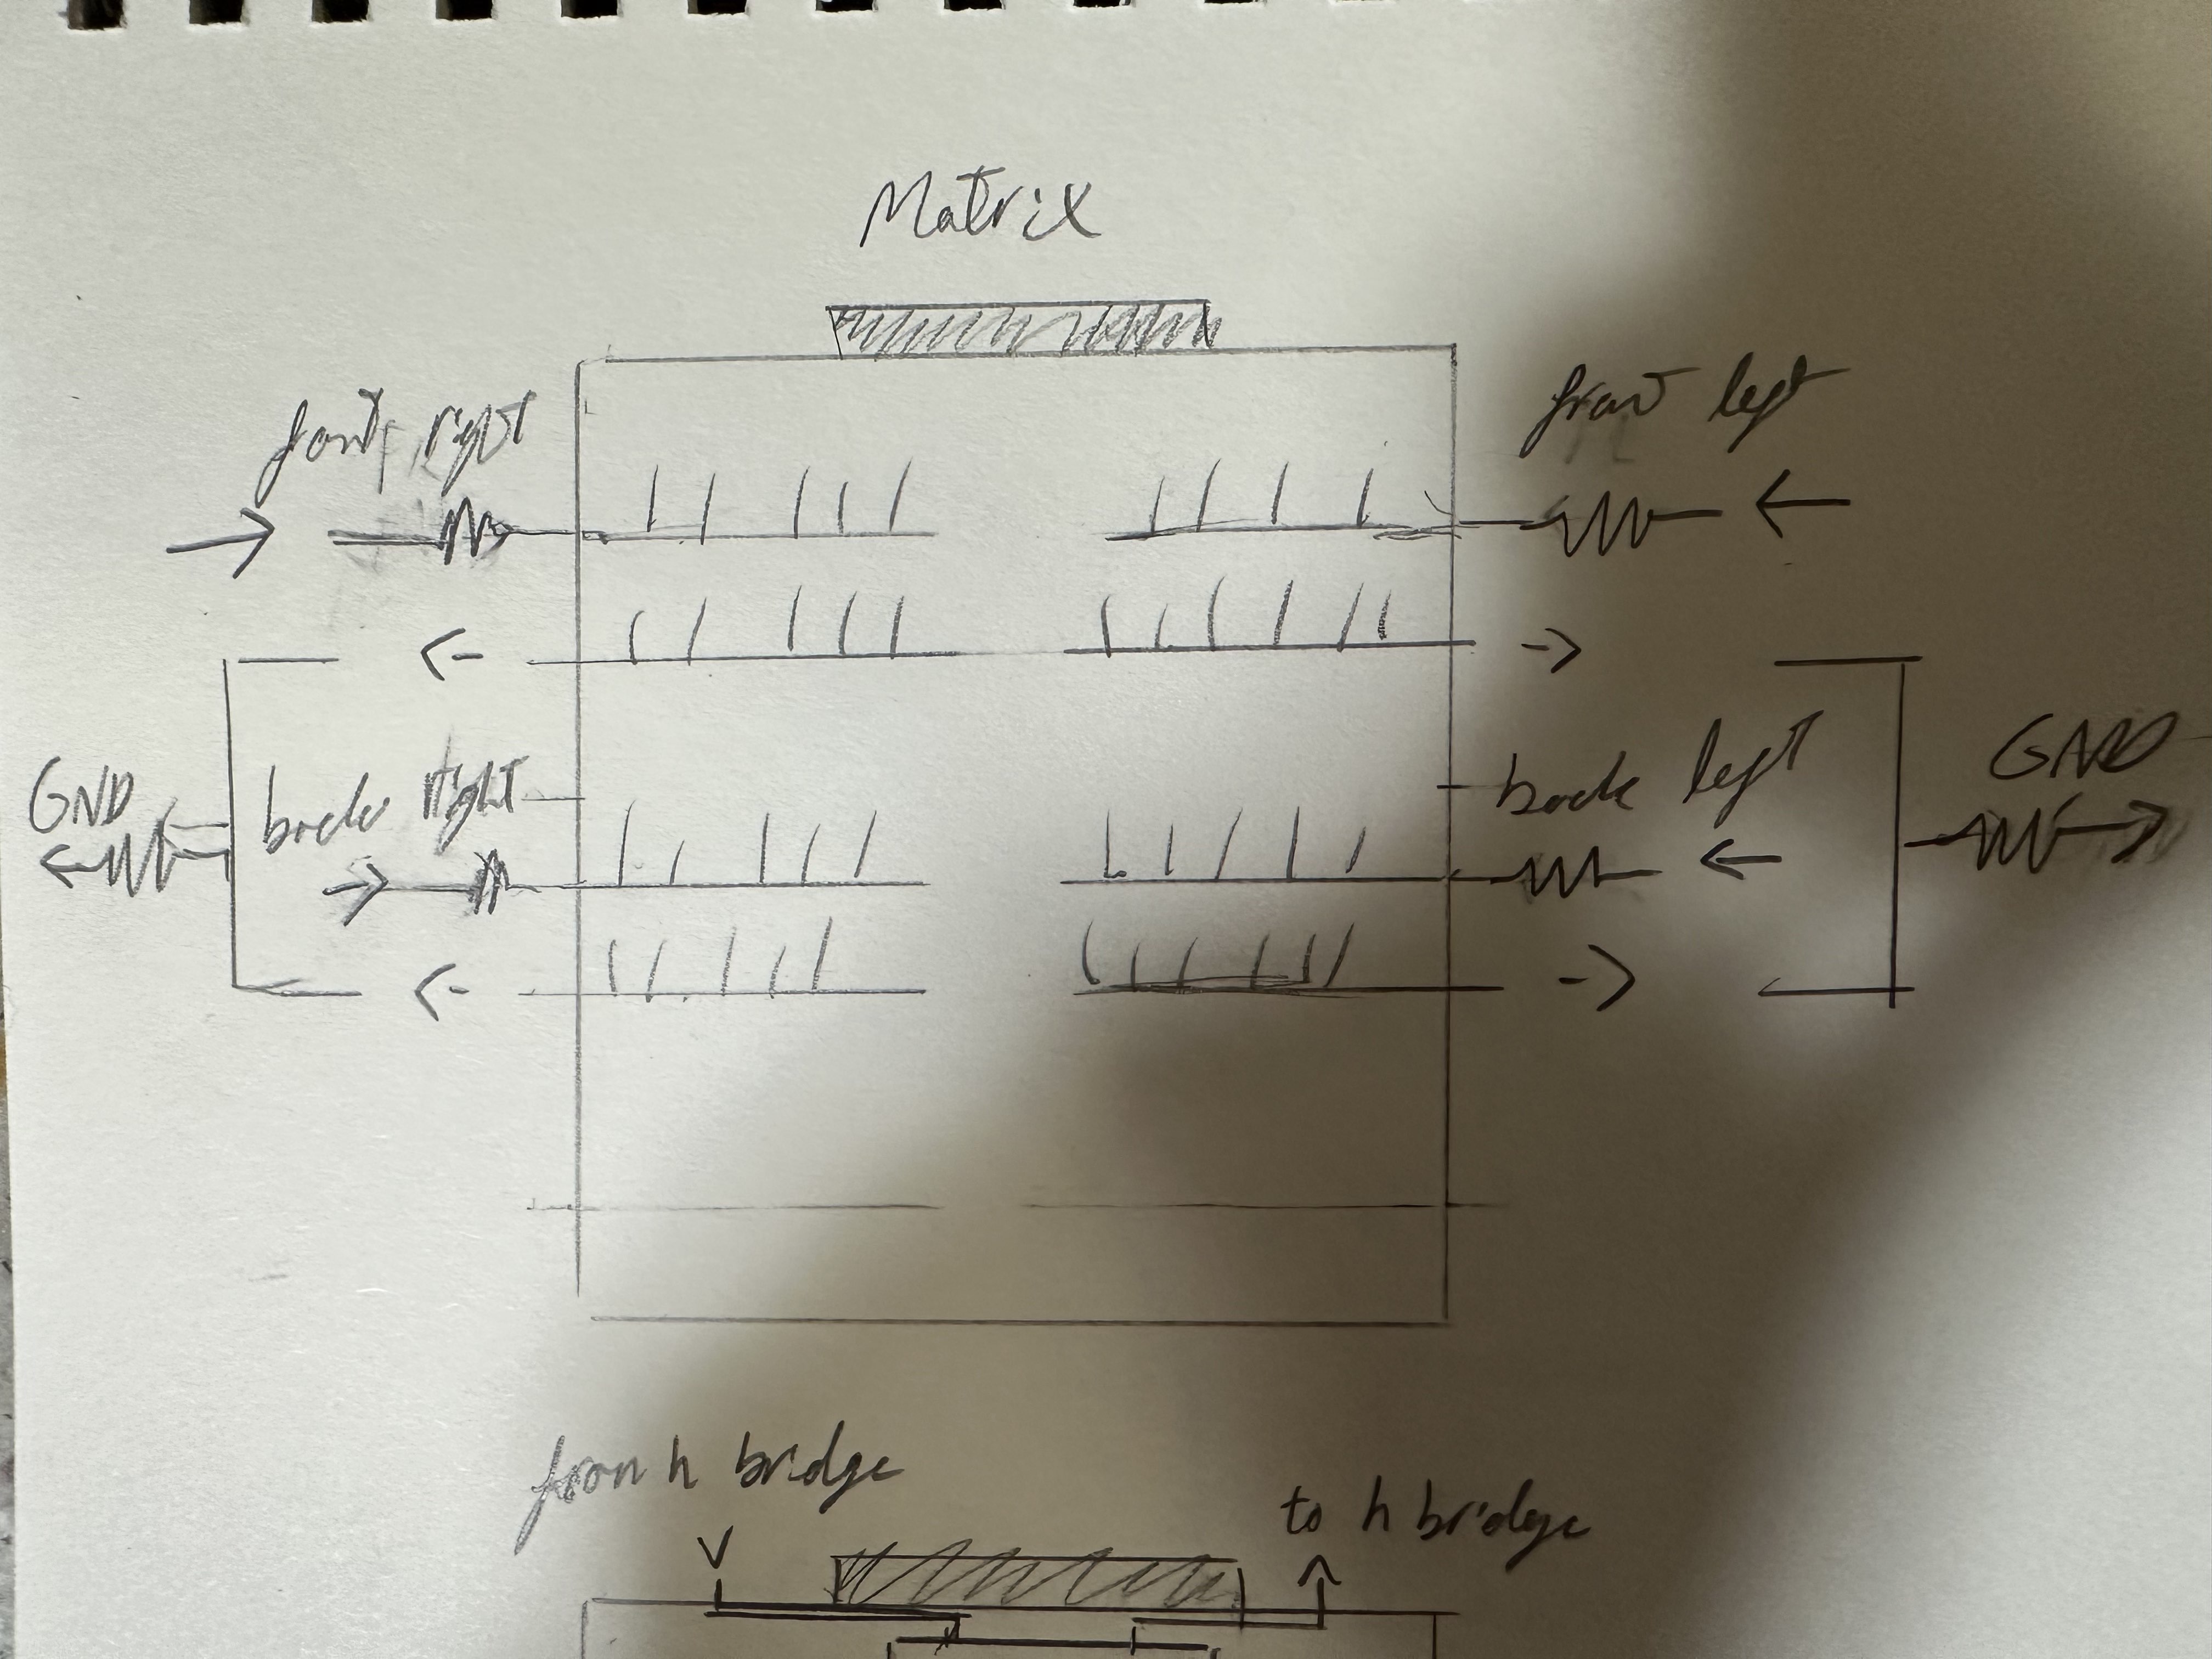 Matrix
font right
front left
GND
back right
back left
GND
from h bridge
to h bridge